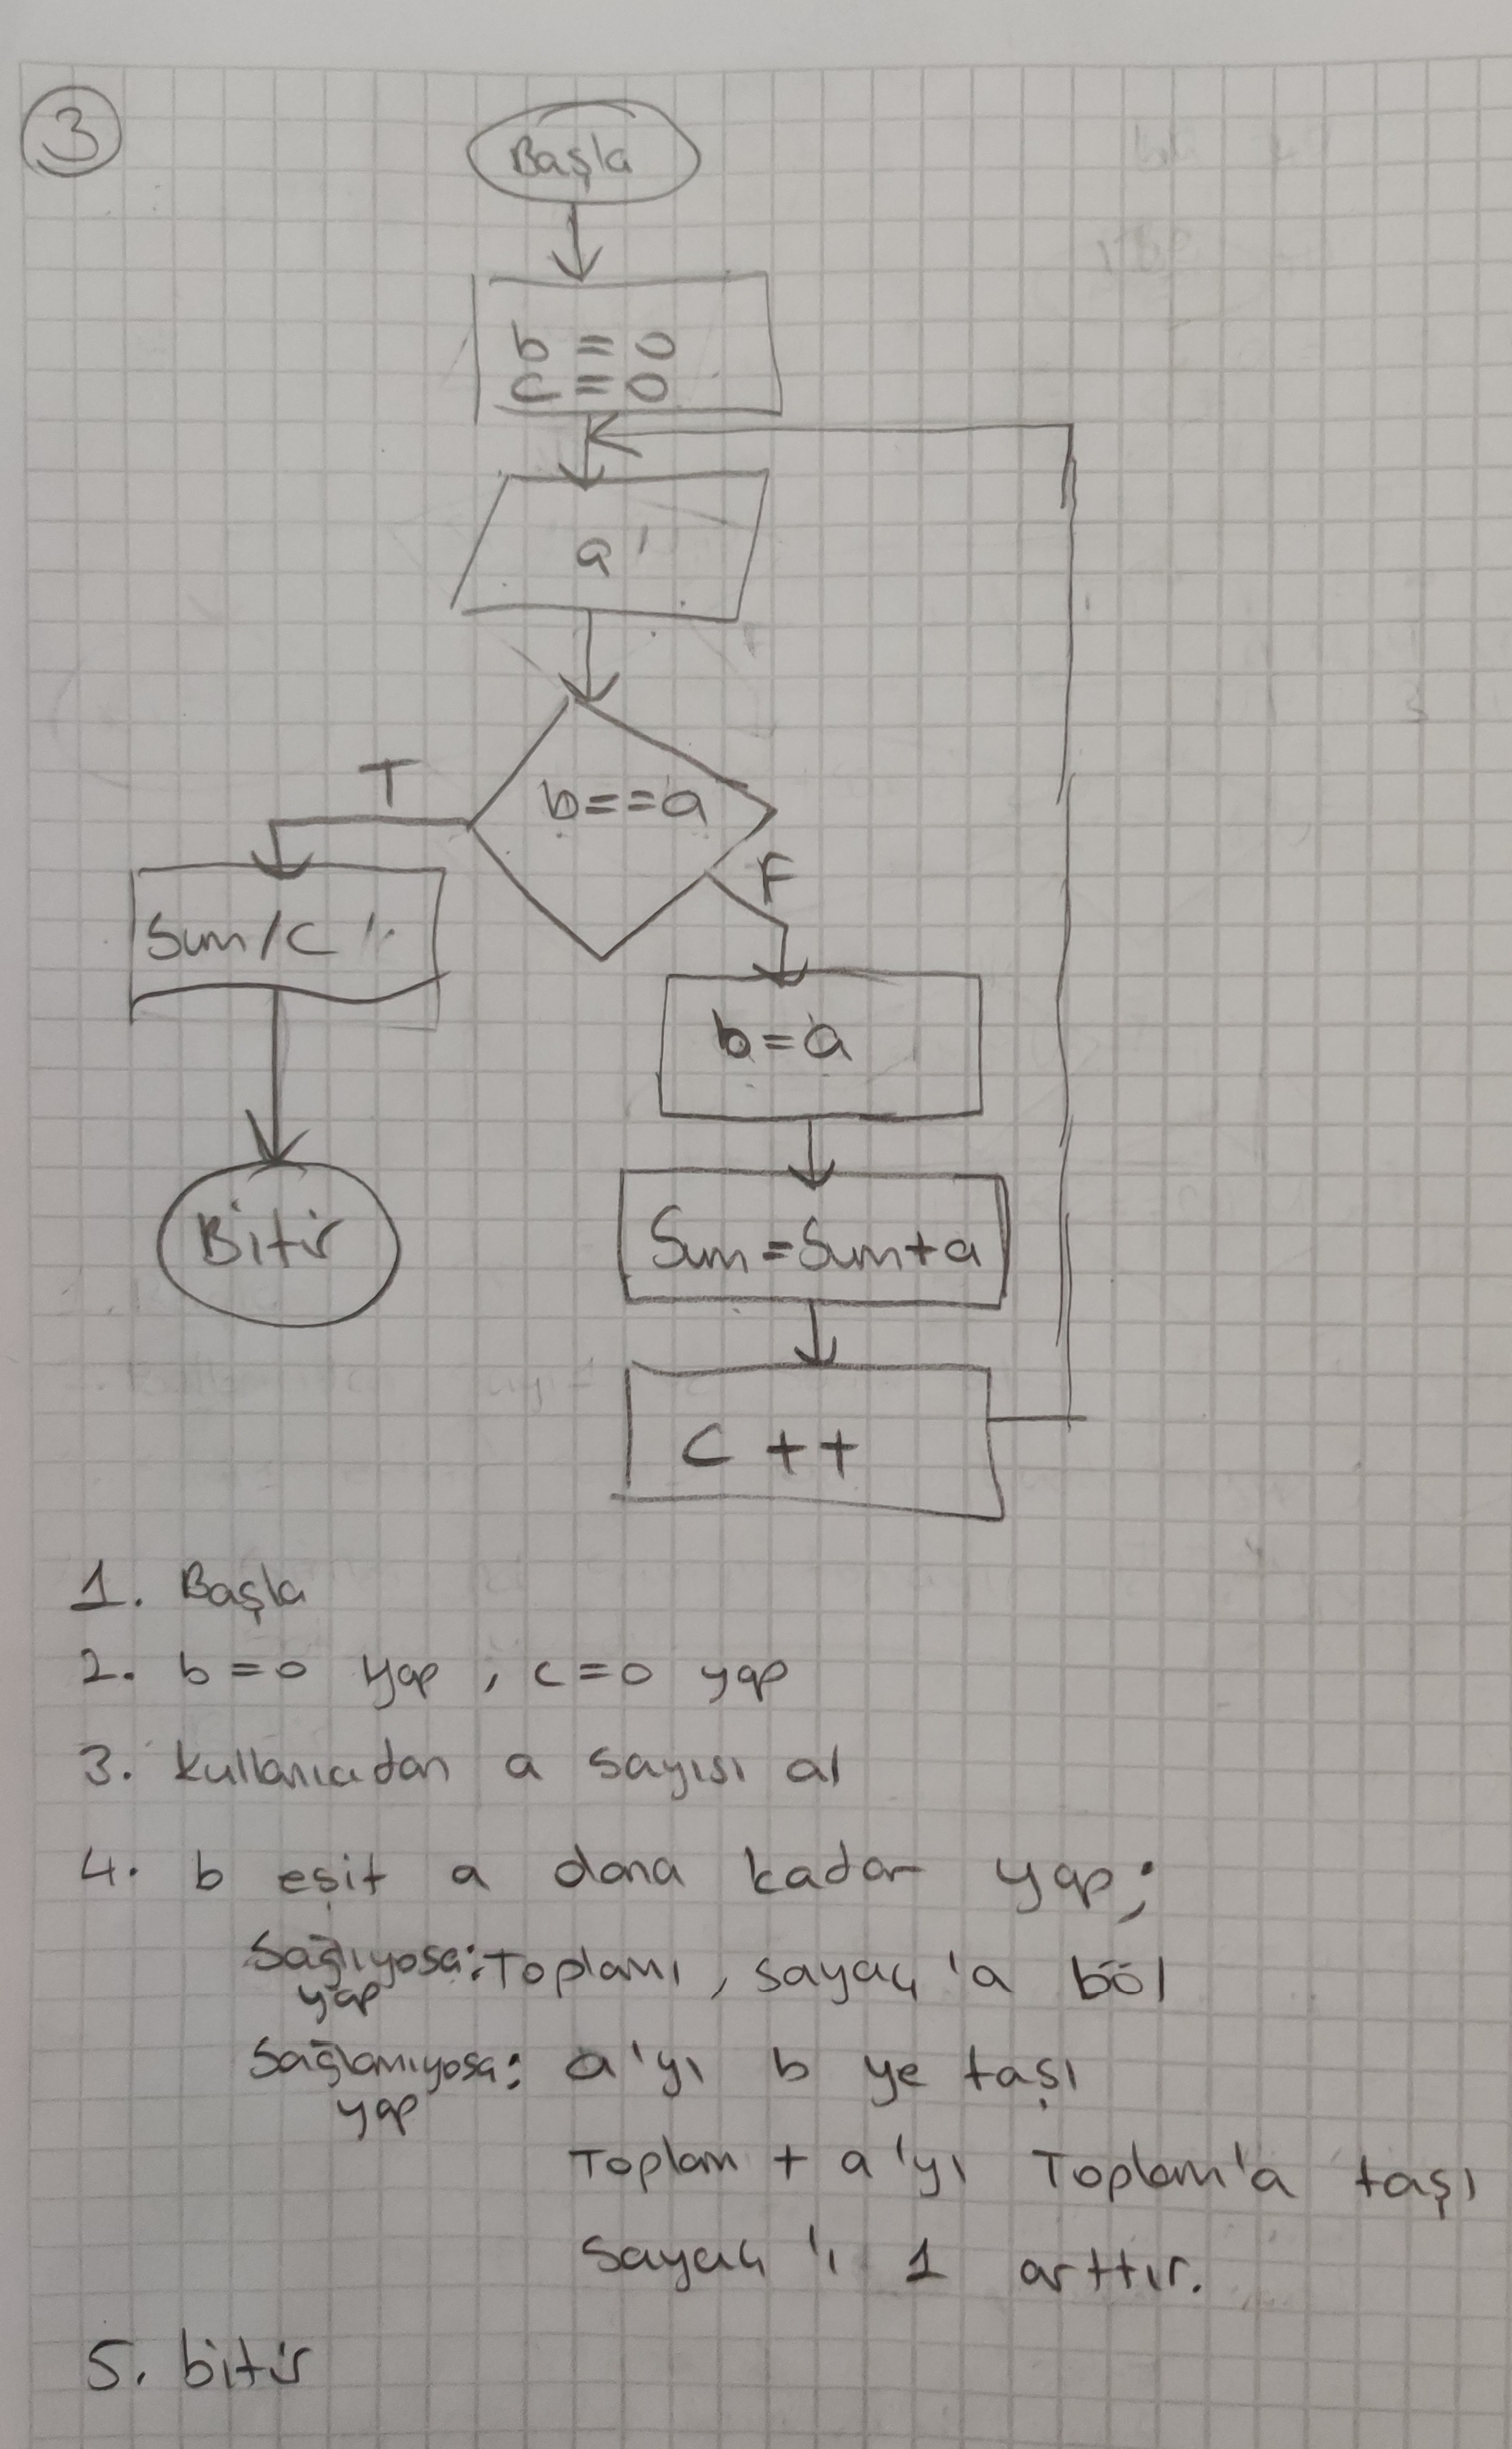 3
Başla
b = 0
c = 0
a
b==a
T
F
Sum/C
b=a
Bitir
Sum=Sum+a
C ++
1. Başla
2. b=0 yap, c=0 yap
3. kullanıcıdan a sayısı al
4. b eşit a dana kadar yap;
Sağlıyosa: Toplamı, sayaç'a böl
yap
Sağlamıyosa: a'yı b ye taşı
yap
Toplam + a'yı Toplam'a taşı
Sayaç'ı 1 arttır.
5. bitir